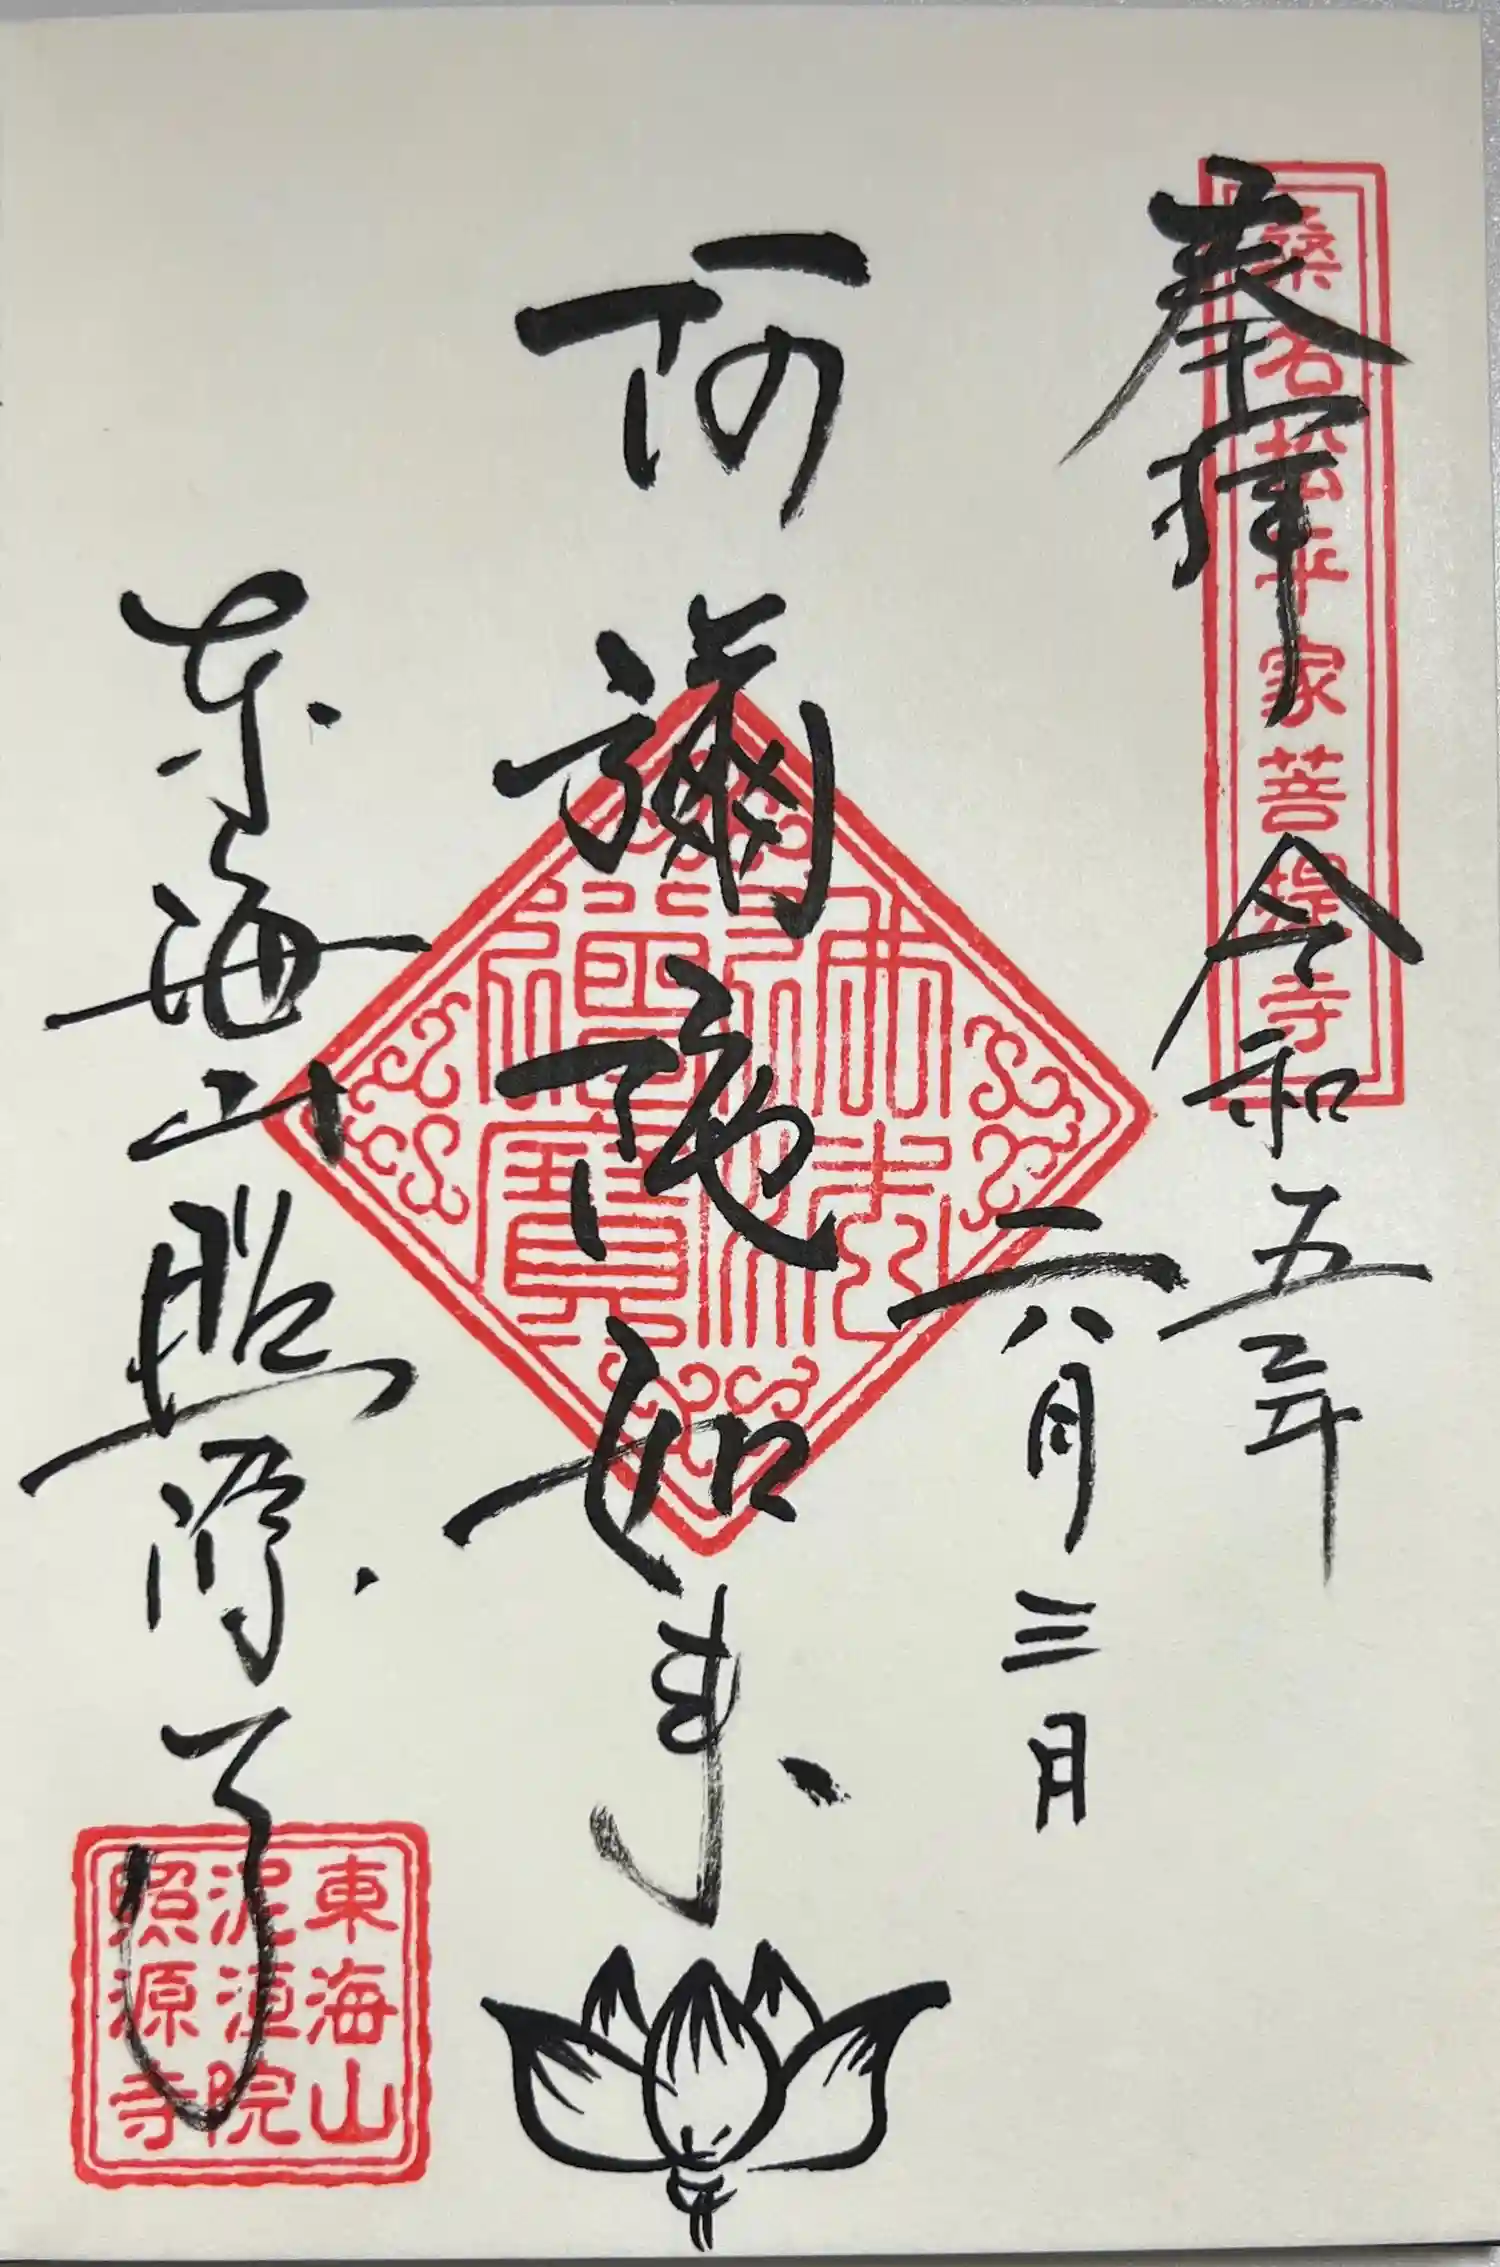 桑名松平家菩提寺
奉拝
令和五年
六月三日
佛法僧寶
阿彌陀如来
東海山照源寺
東海山
泥洹院
照源寺